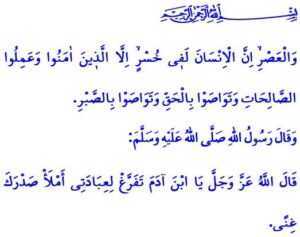 بِسْمِ اللّٰهِ الرَّحْمٰنِ الرَّحِيمِ
وَالْعَصْرِۙ اِنَّ الْاِنْسَانَ لَفٖى خُسْرٍۙ اِلَّا الَّذٖينَ اٰمَنُوا وَعَمِلُوا
الصَّالِحَاتِ وَتَوَاصَوْا بِالْحَقِّ وَتَوَاصَوْا بِالصَّبْرِ.
وَقَالَ رَسُولُ اللهِ صَلَّى اللهُ عَلَيْهِ وَسَلَّمَ:
قَالَ اللَّهُ عَزَّ وَجَلَّ يَا ابْنَ آدَمَ تَفَرَّغْ لِعِبَادَتِى أَمْلَأْ صَدْرَكَ
غِنًى.